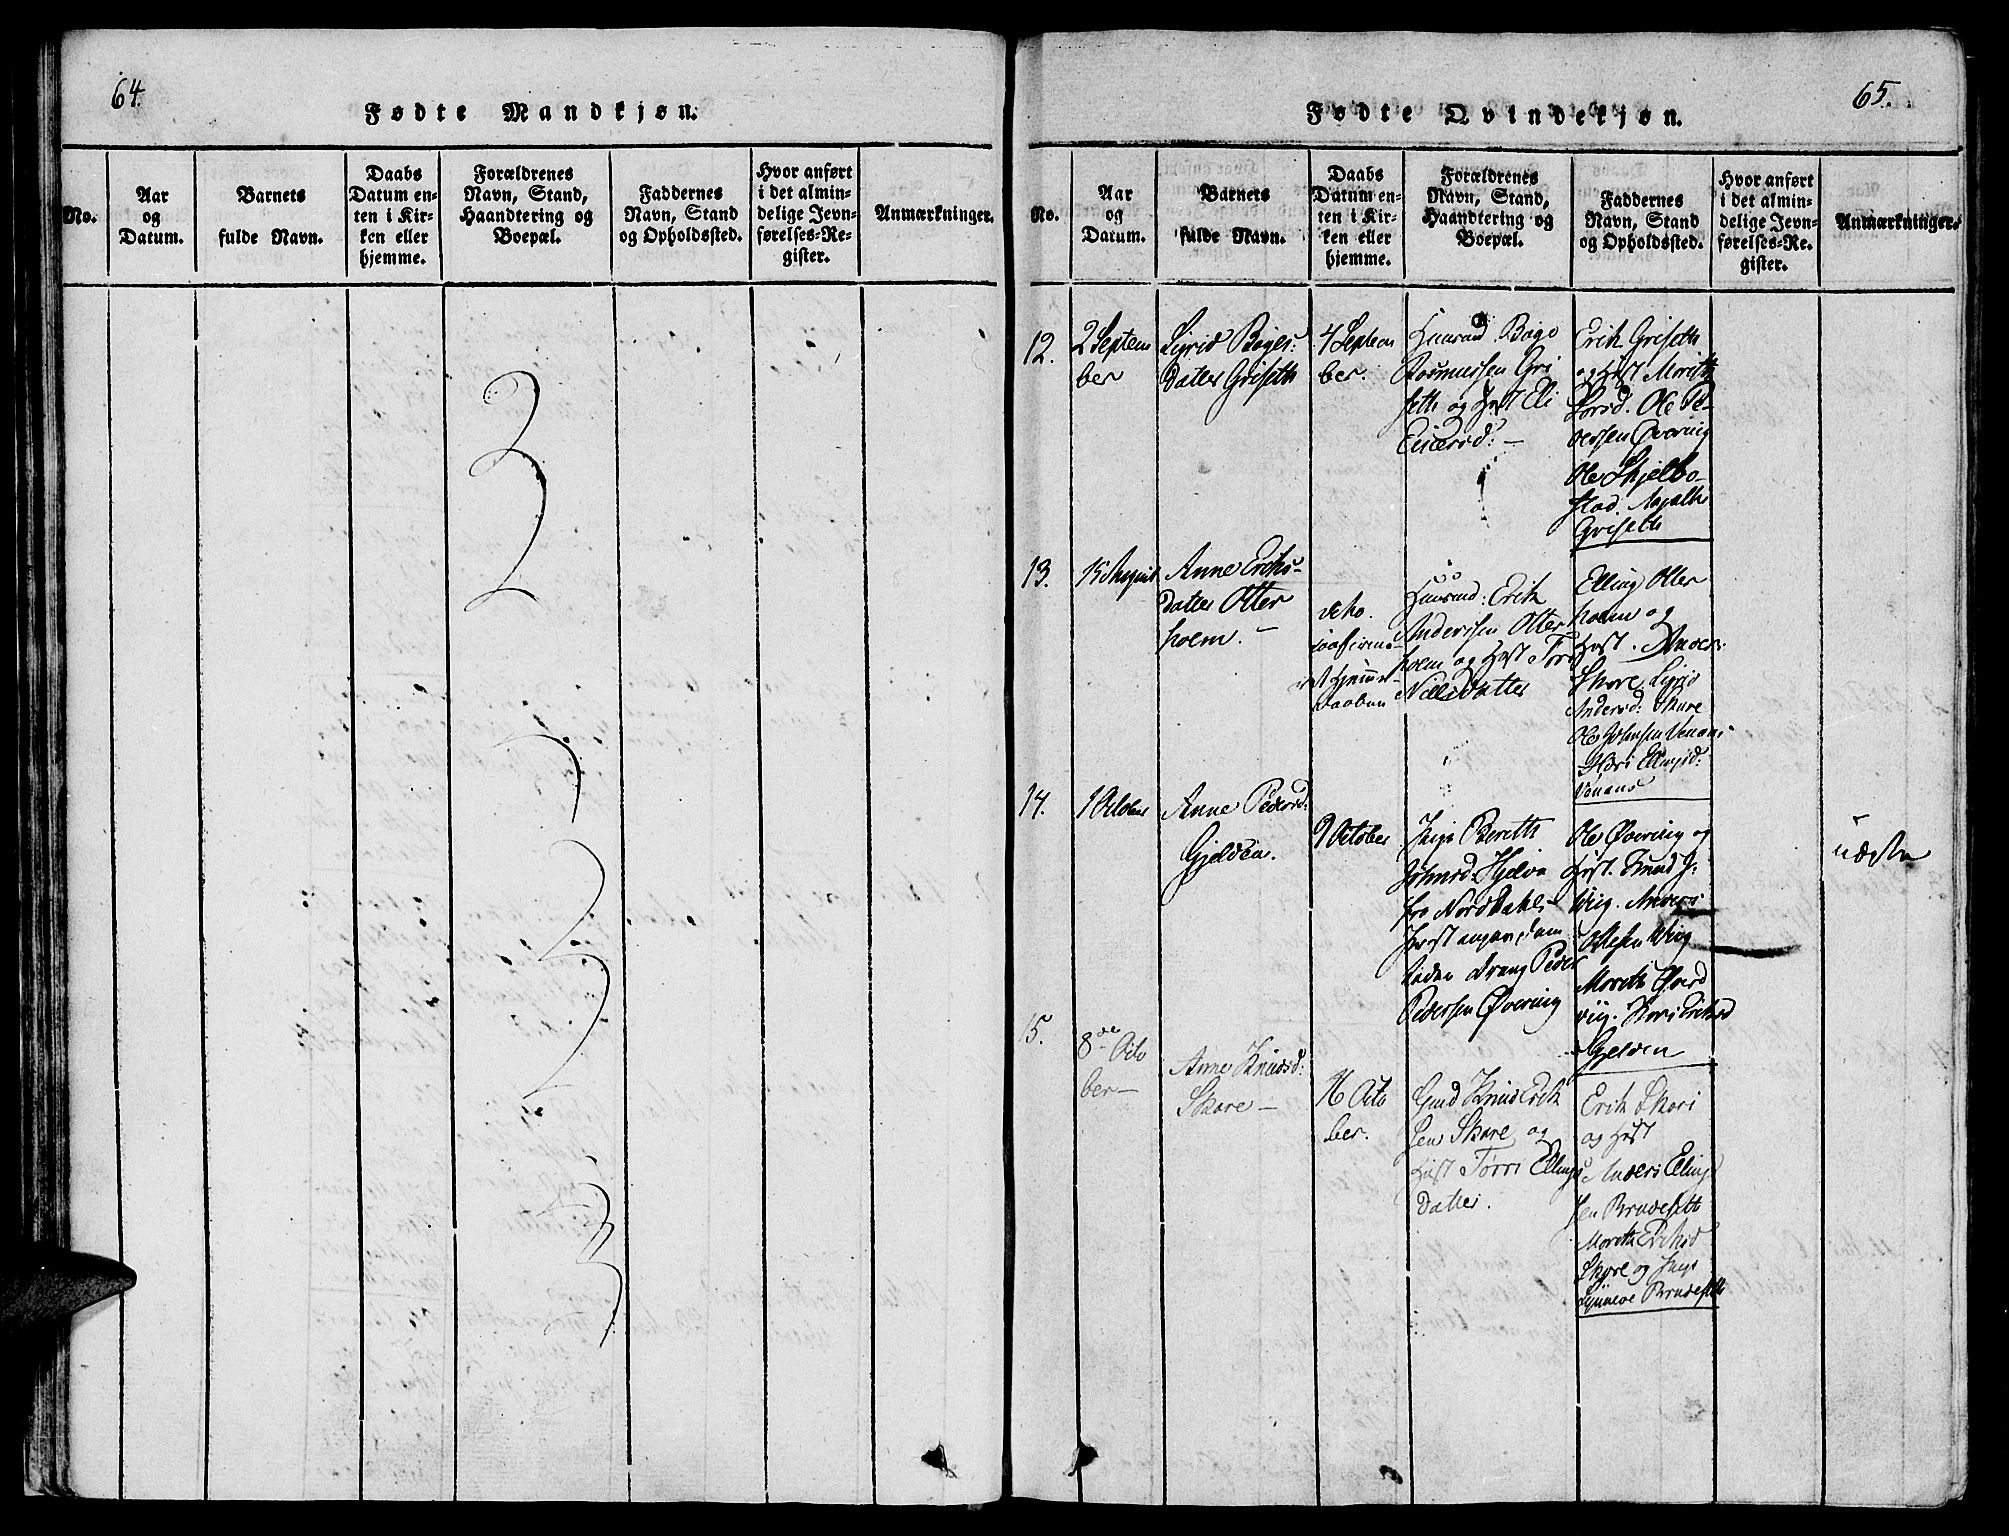 64.
Fødte Mandkjøn.
No.
Aar
og
Datum.
Barnets
fulde Navn.
Daabs
Datum en-
ten i Kir-
ken eller
hjemme.
Forældrenes
Navn, Stand,
Haandtering og
Boepæl.
Faddernes
Navn, Stand
og Opholdssted.
Hvor anført
i det almin-
delige Jevn-
førelses-Re-
gister.
Anmærkninger.
65.
Fødte Qvindekjøn.
No.
Aar
og
Datum.
Barnets
fulde Navn.
Daabs
Datum en-
ten i Kir-
ken eller
hjemme.
Forældrenes
Navn, Stand,
Haandtering og
Boepæl.
Faddernes
Navn, Stand
og Opholdssted.
Hvor anført
i det almin-
delige Jevn-
førelses-Re-
gister.
Anmærkninger.
12.
2 Septem
ber
Sigrid Bojes:
Datter Griseth
4 Septem
ber.
Huusmd: Boye
Rasmussen Gri
seth og Hust Eli
Erik Griseth
og Hust Marith
Larsd. Ole Pe-
dersen Øvering
Ole Skjelbo-
stad.
Griseth
13.
15 August
Anne Erichs-
Datter Otter
holm. –
Huusmd: Erik
Anderssen Otter
holm og Hust
Nielsdatter
Elling Otter
holm og
Hust. Anders
Skare, Sigrid
Andersd: Skare
Ole Johnsen
Ellingsd:
14.
1 October
Anne Pedersd:
Gjelden.
9 October
Pige Berith
Johnsd:
fra Norddahls
Drang Peder
Pedersen Øvering
Ole Øvering og
Hust. Knud J:
Viig. Anders
Ottesen Viig
Marith
Viig. Kari Eriksd
Gjelden
næste
15.
8de Octo
ber –
Anne Knudsd:
Skare –
16 Octo
ber.
Gmd Knud Erik
sen Skare og
Hust Tørri Ellings
datter.
Erik Skare
og Hust
Anders Ellings
sen Brudeseth
Marith Eriksd
Skare og Pige
Synneve Brudeseth